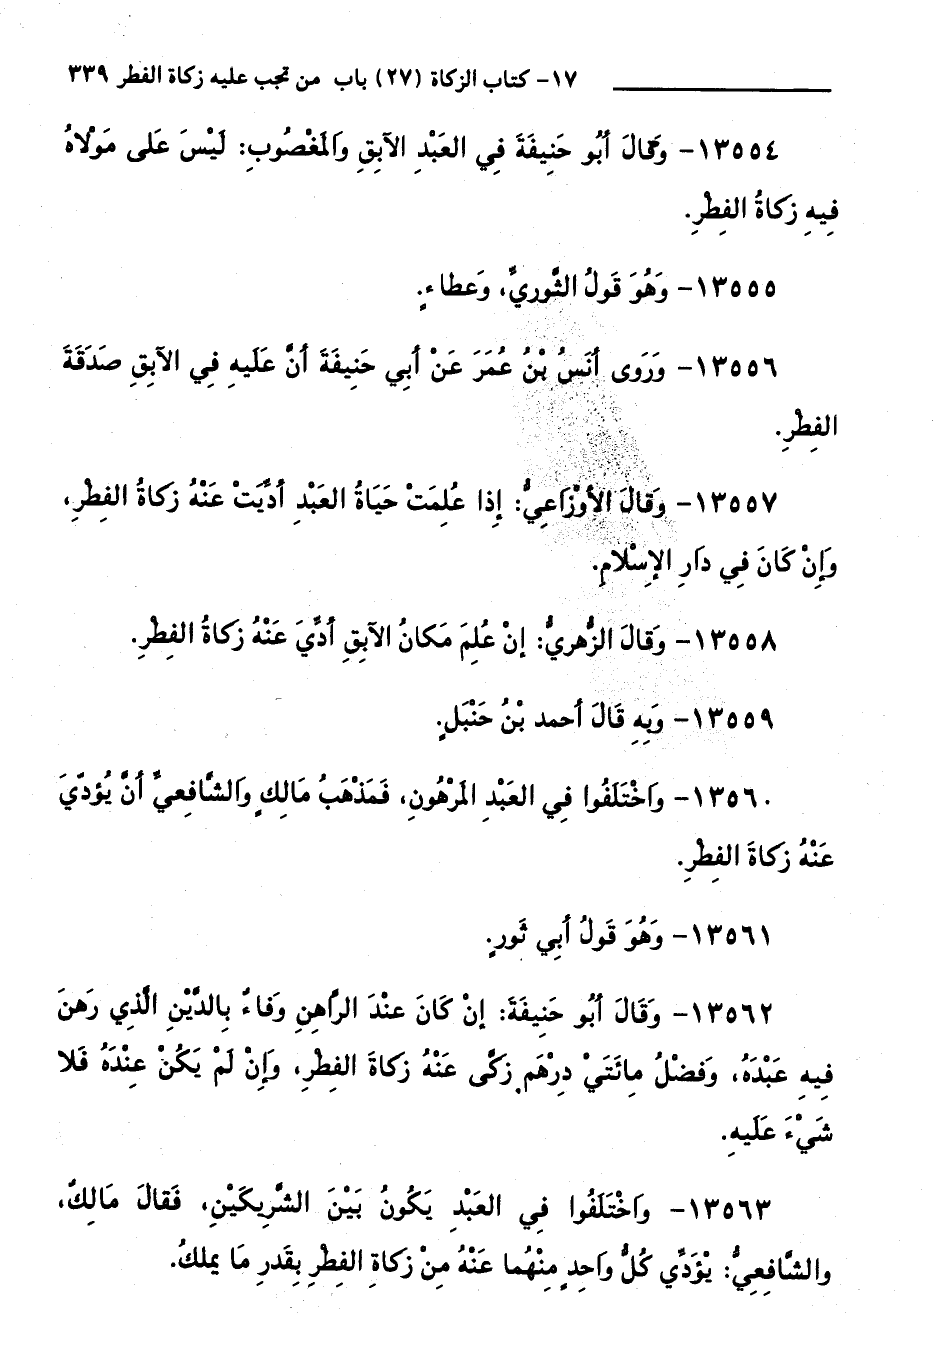 ١٧- كتاب الزكاة (٢٧) باب من تجب عليه زكاة الفطر ٣٣٩
١٣٥٥٤- وَقالَ أَبُو حَنِيفَةَ فِي العَبْدِ الآبِقِ وَالمَغْصُوبِ: لَيْسَ عَلى مَوْلاهُ
فِيهِ زكاةُ الفِطْرِ.
١٣٥٥٥- وَهُوَ قَولُ الثَّوريِّ، وَعطاءٍ.
١٣٥٥٦- وَرَوى أَنَسُ بْنُ عُمَرَ عَنْ أَبِي حَنِيفَةَ أَنَّ عَلَيهِ فِي الآبِقِ صَدَقَةَ
الفِطْرِ.
١٣٥٥٧- وَقالَ الأوْزَاعِيُّ: إِذا عُلِمَتْ حَيَاةُ العَبْدِ أُدِّيَتْ عَنْهُ زكَاةُ الفِطْرِ،
وَإِنْ كَانَ فِي دَارِ الإِسْلامِ.
١٣٥٥٨- وَقالَ الزُّهريُّ: إنْ عُلِمَ مَكانُ الآبِقِ أُدِّيَ عَنْهُ زكَاةُ الفِطْرِ.
١٣٥٥٩- وَبِهِ قَالَ أحمد بْنُ حَنْبَلٍ.
١٣٥٦٠- وَاخْتَلَفُوا فِي العَبْدِ المَرْهُونِ، فَمَذْهَبُ مَالِكٍ وَالشَّافعيِّ أَنْ يُؤدّيَ
عَنْهُ زكَاةَ الفِطْرِ.
١٣٥٦١- وَهُوَ قَولُ أَبِي ثَورٍ.
١٣٥٦٢- وَقَالَ أَبُو حَنِيفَةَ: إنْ كَانَ عنْدَ الرَّاهنِ وَفاءٌ بِالدَّيْنِ الَّذي رَهنَ
فِيهِ عَبْدَهُ، وَفضْلُ مائَتَيْ دِرْهَمٍ زكَّى عَنْهُ زكاةَ الفِطْرِ، وَإِنْ لَمْ يَكُنْ عِنْدَهُ فَلا
شَيْءَ عَلَيهِ.
١٣٥٦٣- وَاخْتَلَفُوا فِي العَبْدِ يَكُونُ بَيْنَ الشَّرِيكَيْنِ، فَقالَ مَالِكٌ،
والشَّافِعِيُّ: يُؤَدِّي كُلُّ وَاحِدٍ مِنْهُما عَنْهُ مِنْ زكاةِ الفِطْرِ بِقَدرِ مَا يملكُ.